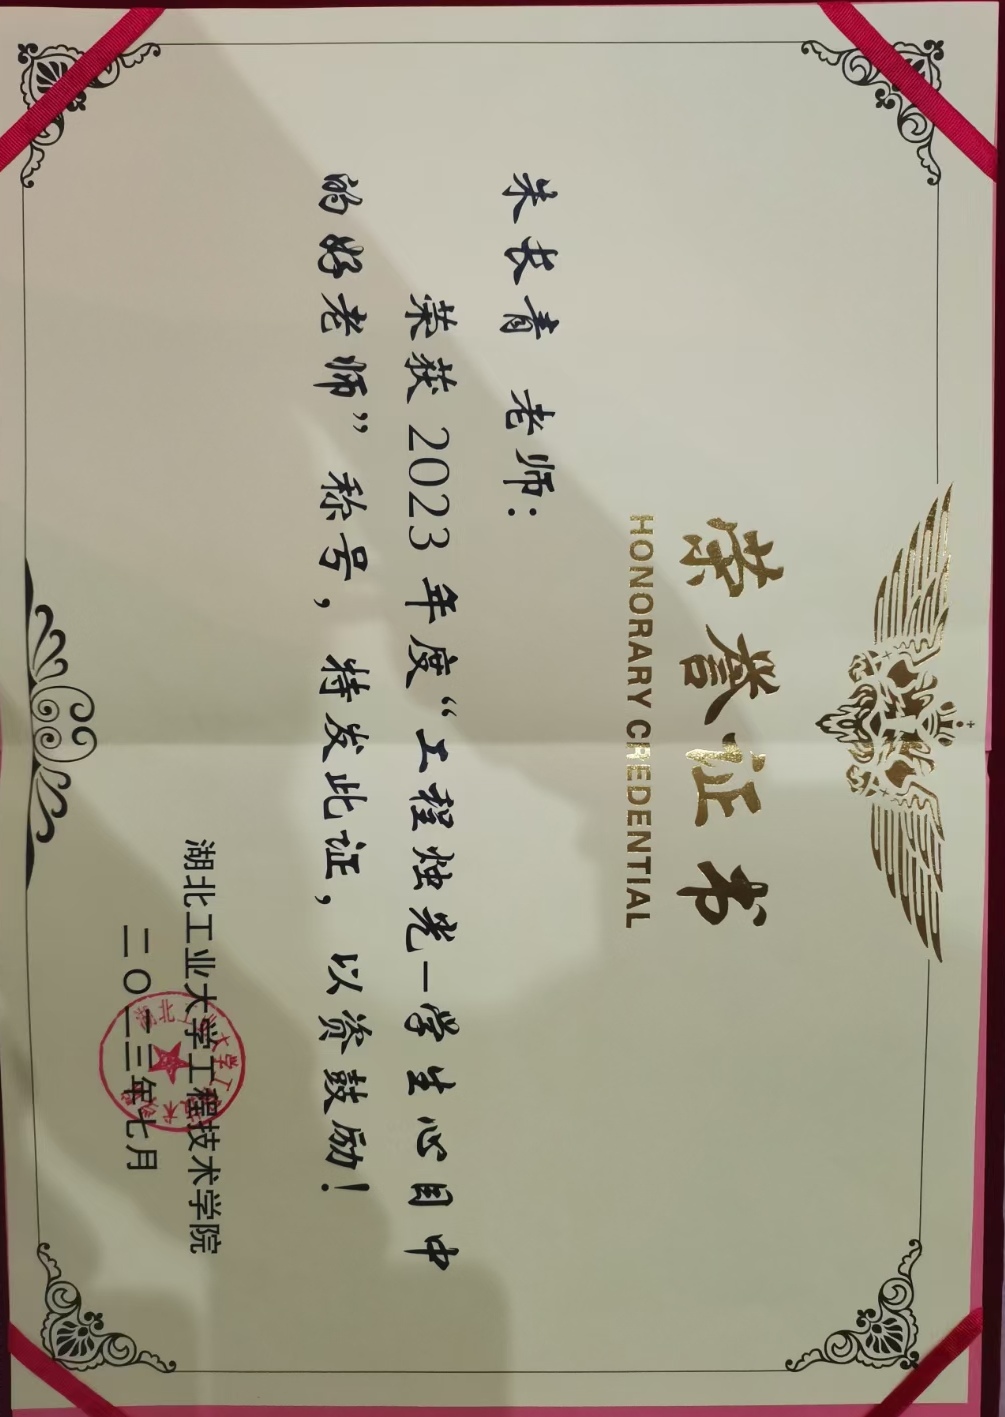 荣誉证书
HONORARY CREDENTIAL
关长青 老师：
荣获2023年度“工程烛光—学生心目中
的好老师”称号，特发此证，以资鼓励！
湖北工业大学工程技术学院
二〇二三年七月